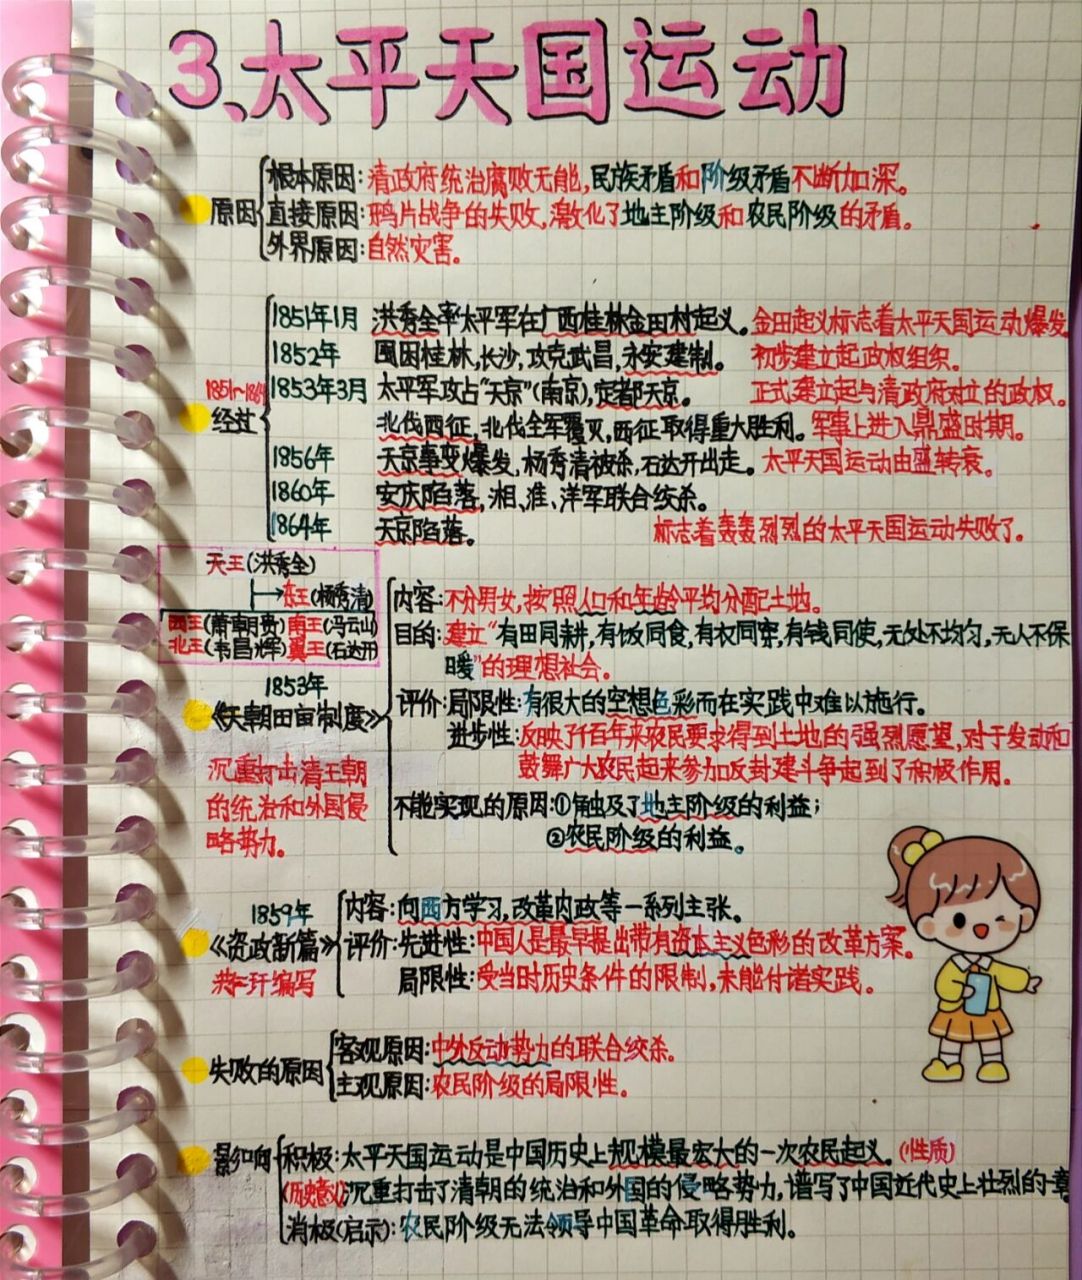 3、太平天国运动
根本原因:清政府统治腐败无能,民族矛盾和阶级矛盾不断加深。
原因 直接原因:鸦片战争的失败,激化了地主阶级和农民阶级的矛盾。
外界原因:自然灾害。
1851年1月 洪秀全率太平军在广西桂林金田村起义。金田起义标志着太平天国运动爆发
1852年 围困桂林,长沙,攻克武昌,永安建制。 初步建立起政权组织。
1851~1864 1853年3月 太平军攻占“天京”(南京),定都天京。 正式建立起与清政府对立的政权。
经过 北伐西征,北伐全军覆灭,西征取得重大胜利。军事上进入鼎盛时期。
1856年 天京事变爆发,杨秀清被杀,石达开出走。太平天国运动由盛转衰。
1860年 安庆陷落,湘、淮、洋军联合绞杀。
1864年 天京陷落。 标志着轰轰烈烈的太平天国运动失败了。
天王(洪秀全)
东王(杨秀清)
西王(萧朝贵)南王(冯云山)
北王(韦昌辉)翼王(石达开
1853年
《天朝田亩制度》
沉重打击清王朝
的统治和外国侵
略势力。
内容:不分男女,按照人口和年龄平均分配土地。
目的:建立“有田同耕,有饭同食,有衣同穿,有钱同使,无处不均匀,无人不保
暖”的理想社会。
评价:局限性:有很大的空想色彩而在实践中难以施行。
进步性:反映了千百年来农民要求得到土地的强烈愿望,对于发动和
鼓舞广大农民起来参加反封建斗争起到了积极作用。
不能实现的原因:①触及了地主阶级的利益;
②农民阶级的利益。
1859年
《资政新篇》
洪仁玕编写
内容:向西方学习,改革内政等一系列主张。
评价:先进性:中国人最早提出带有资本主义色彩的改革方案。
局限性:受当时历史条件的限制,未能付诸实践。
失败的原因
客观原因:中外反动势力的联合绞杀。
主观原因:农民阶级的局限性。
影响 积极:太平天国运动是中国历史上规模最宏大的一次农民起义。(性质)
(历史意义)沉重打击了清朝的统治和外国的侵略势力,谱写了中国近代史上壮烈的一章
消极(启示):农民阶级无法领导中国革命取得胜利。